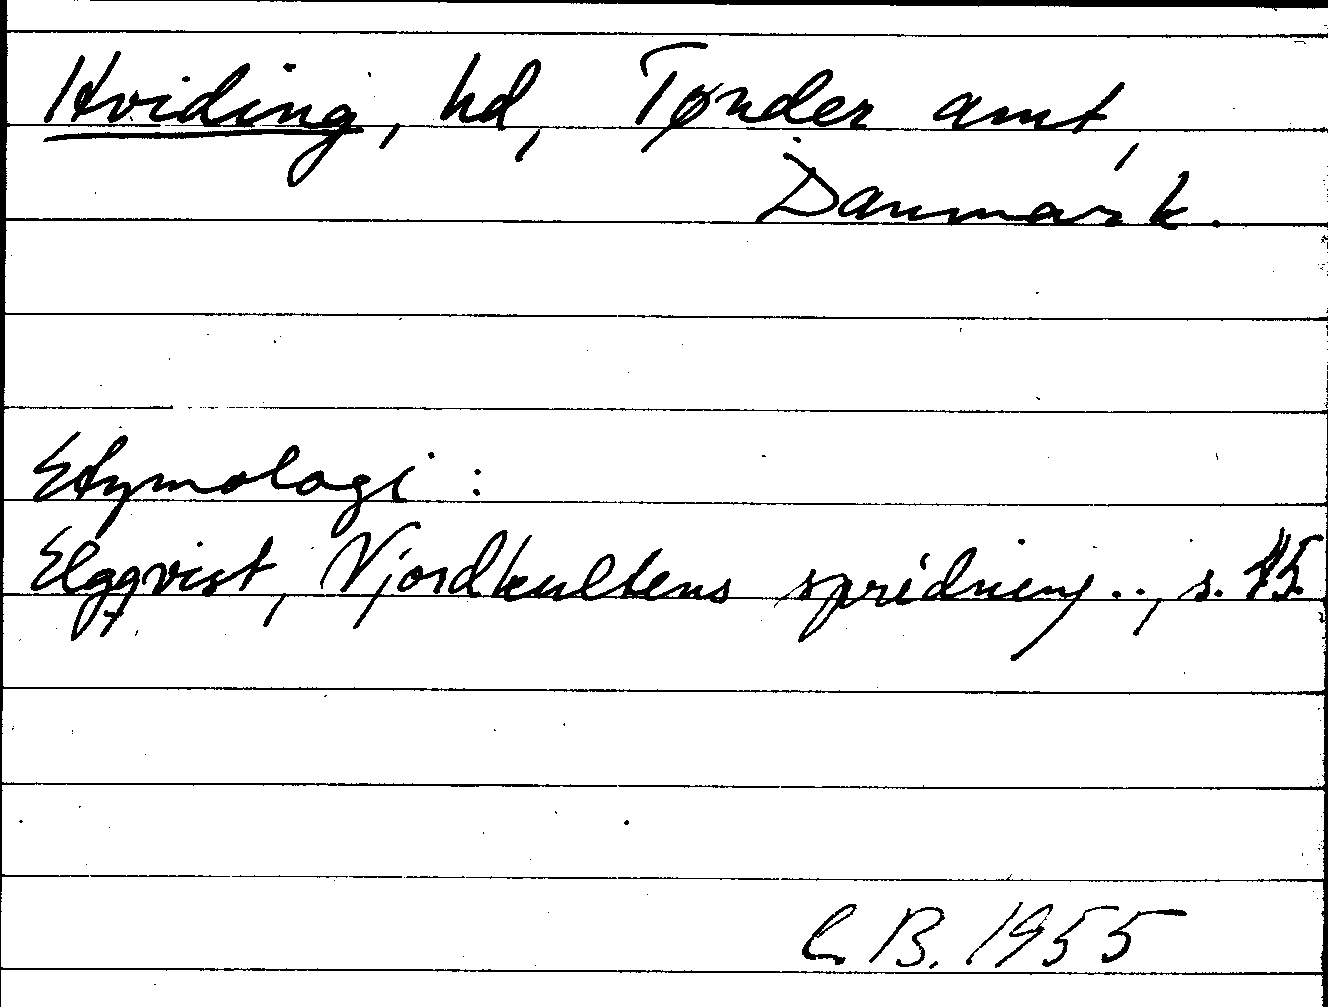 Hviding, hd, Tønder amt,
Danmark.
Etymologi:
Elgqvist, Njordkultens spridning.., s.
C B. 1955